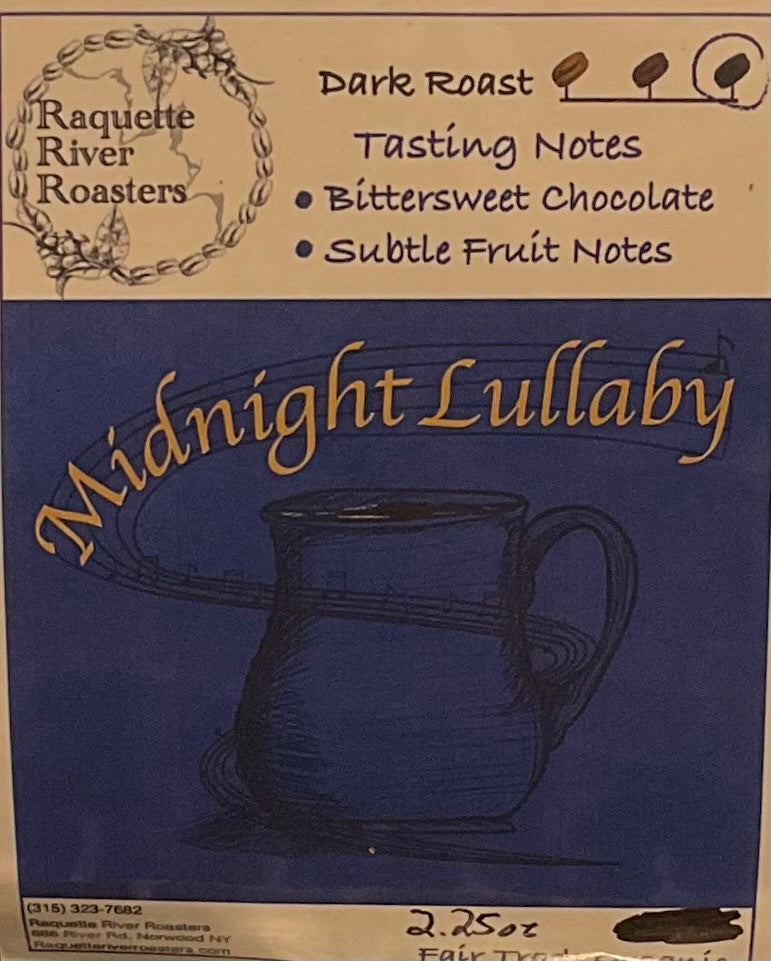 Raquette
River
Roasters
Dark Roast
Tasting Notes
• Bittersweet Chocolate
• Subtle Fruit Notes
Midnight Lullaby
(315) 323-7682
Raquette River Roasters
River Rd, Norwood NY
Raquetteriverroasters.com
2.25oz
Fair